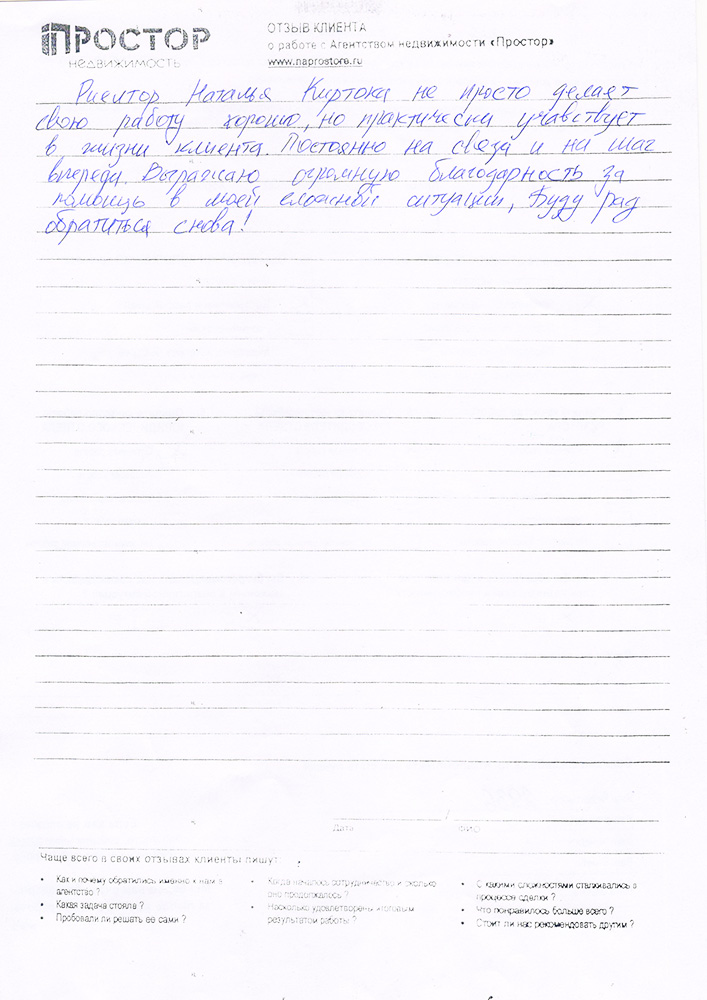 ПРОСТОР
недвижимость
ОТЗЫВ КЛИЕНТА
о работе с Агентством недвижимости «Простор»
www.naprostore.ru
Риелтор Наталья Киртоки не просто делает
свою работу хорошо, но практически учавствует
в жизни клиента. Постоянно на связи и на шаг
впереди. Выражаю огромную благодарность за
помощь в моей сложной ситуации, Буду рад
обратиться снова!
Дата / ФИО
Чаще всего в своих отзывах клиенты пишут:
• Как и почему обратились именно к нам в
агентство ?
• Какая задача стояла ?
• Пробовали ли решать ее сами ?
• Когда началось сотрудничество и сколько
оно продолжалось ?
• Насколько удовлетворены итоговым
результатом работы ?
• С какими сложностями сталкивались в
процессе сделки ?
• Что понравилось больше всего ?
• Стоит ли нас рекомендовать другим ?